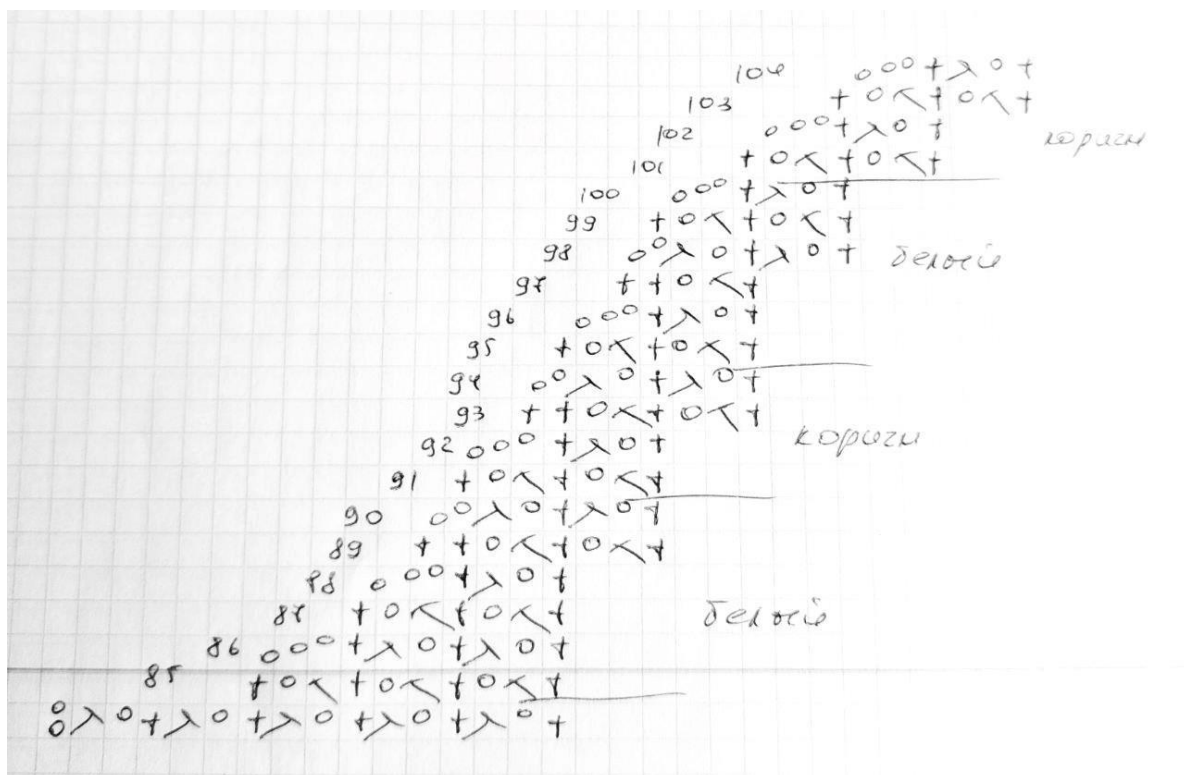 104
103
102
коричн
101
100
99
98
белый
97
96
95
94
93
92
коричн
91
90
89
88
87
белый
86
85